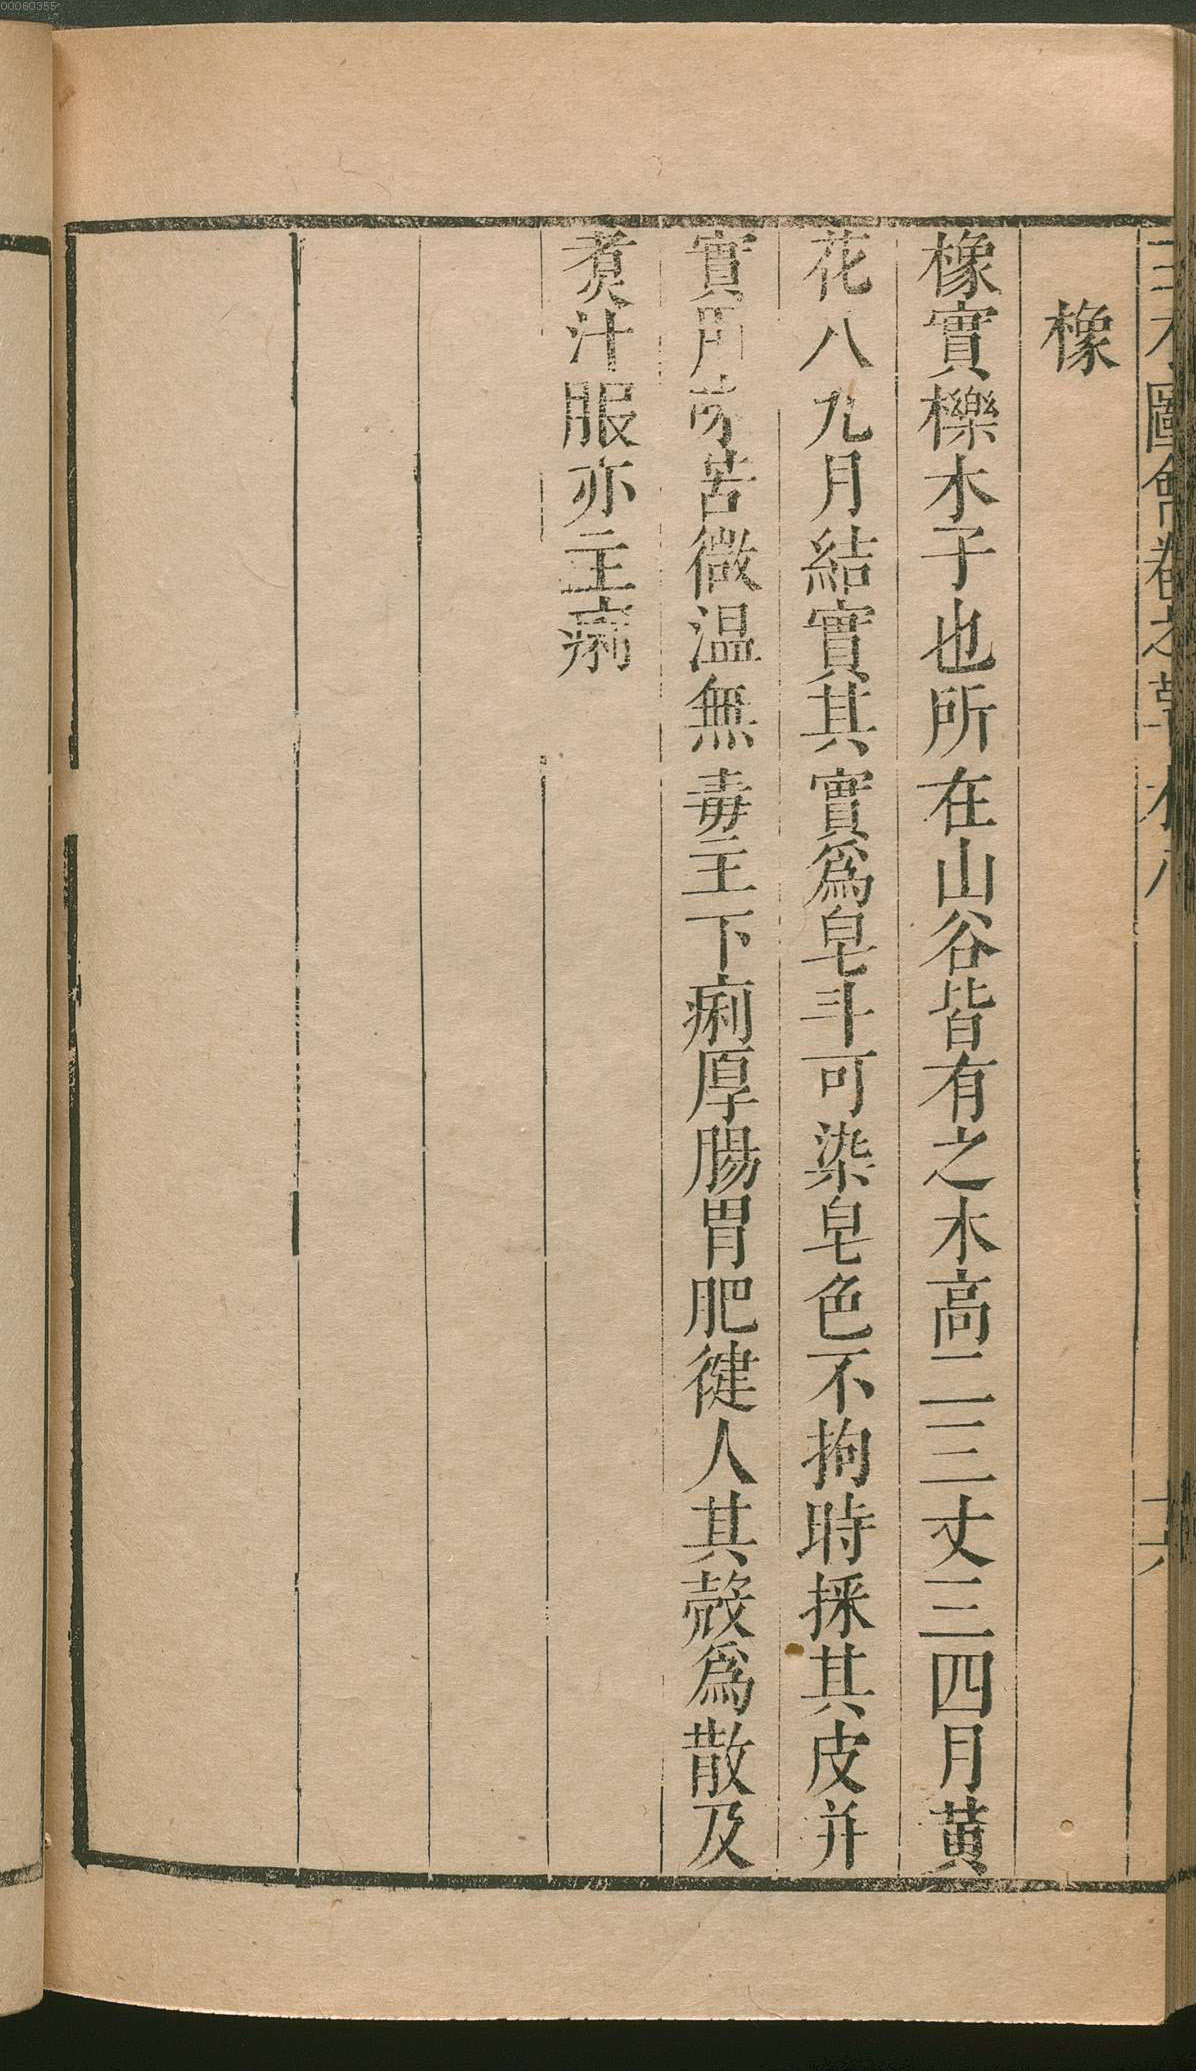 橡
橡實櫟木子也所在山谷皆有之木高二三丈三四月黃
花八九月結實其實爲皂斗可染皂色不拘時採其皮并
實用味苦微温無毒主下痢厚腸胃肥健人其殼爲散及
煑汁服亦主痢
00080355